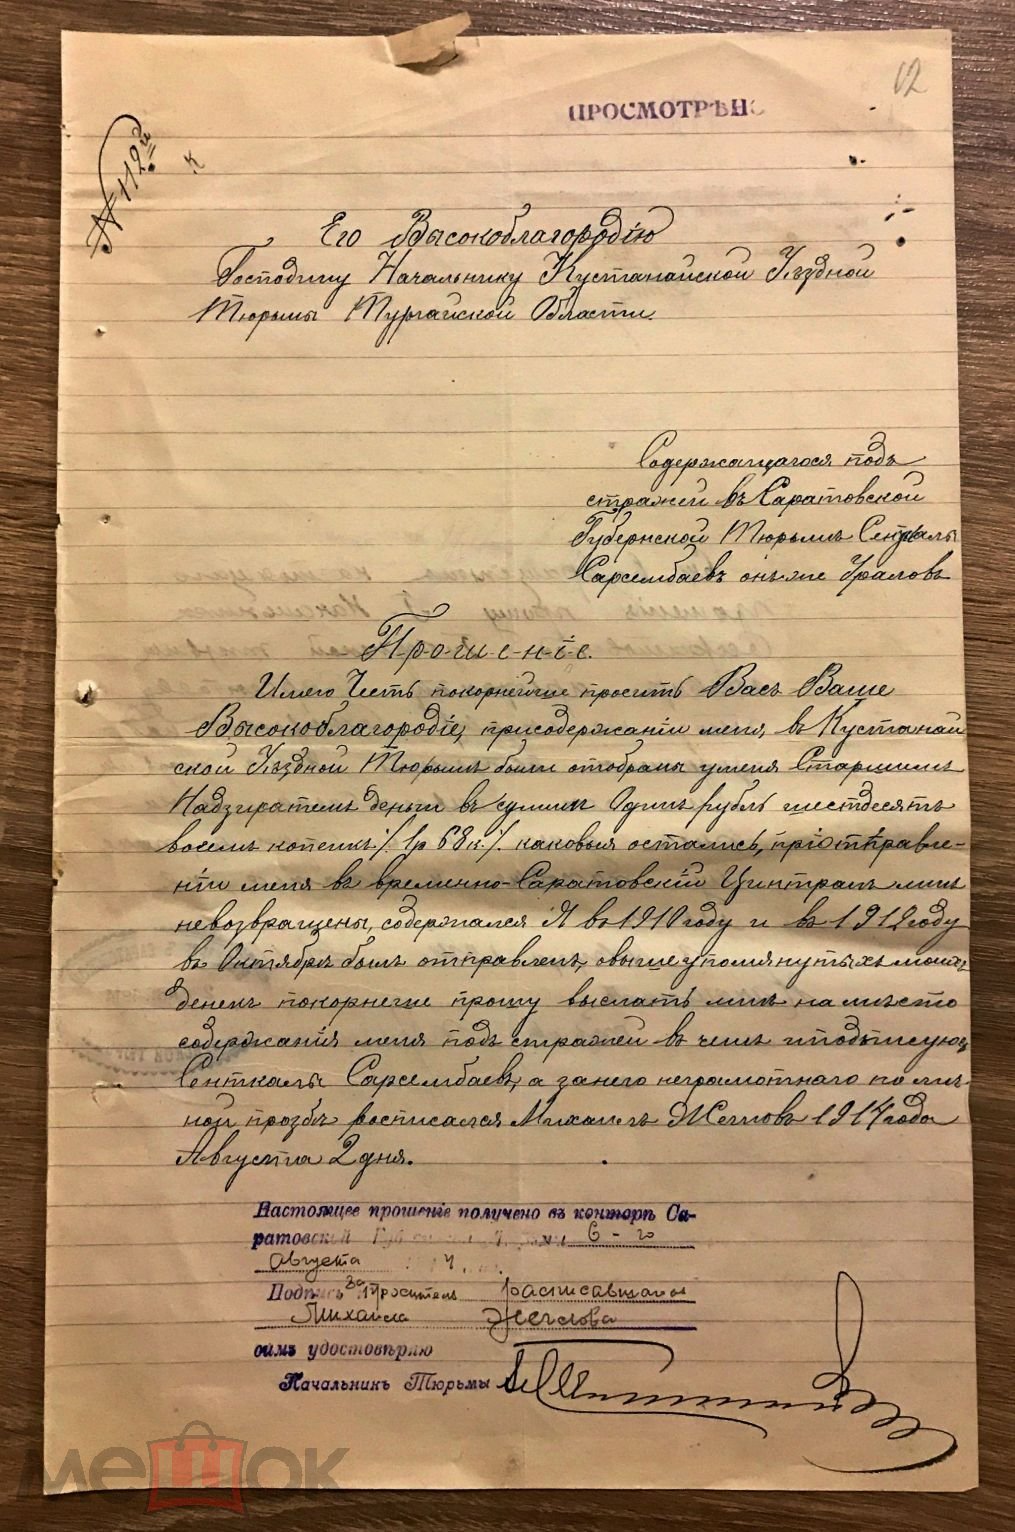 12
ПРОСМОТРѢНО
№ 112й
К
Его Высокоблагородію
Господину Начальнику Кустанайской Уѣздной
Тюрьмы Тургайской Области.
Содержащагося подъ
стражей въ Саратовской
Губернской Тюрьмѣ Сенткалы
Сарсембаевъ онъ же Ураловъ
П-р-о-ш-е-н-і-е.
Имею Честь покорнейше просить Васъ Ваше
Высокоблагородіе, присодержаніи меня, въ Кустанай
ской Уѣздной Тюрьмѣ были отобраны уменя Старшимъ
Надзирателемъ деньги въ суммѣ Одинъ рубль шестдесятъ
восемъ копѣекъ ./. 1р 68к ./. каковыя остались, пріотправле-
ніи меня въ временно-Саратовскій Цинтралъ мнѣ
невозвращены, содержался Я въ 1910 году и въ 1912 году
въ Октябрѣ былъ отправленъ, овышеупомянутыхъ моихъ
денегъ покорнеше прошу выслать мнѣ на мѣсто
содержанія меня подъ стражей въ чемъ и подписуюсь
Сенткалы Сарсембаевъ, а занего неграмотнаго по лич-
ной прозбѣ росписался Михаилъ Жегловъ 1914 года
Августа 2 дня.
Настоящее прошеніе получено въ конторѣ Са-
ратовской 6-го
августа
Подпись за просителя расписавшагося
Михаила Жеглова
симъ удостовѣряю
Начальникъ Тюрьмы
мешок